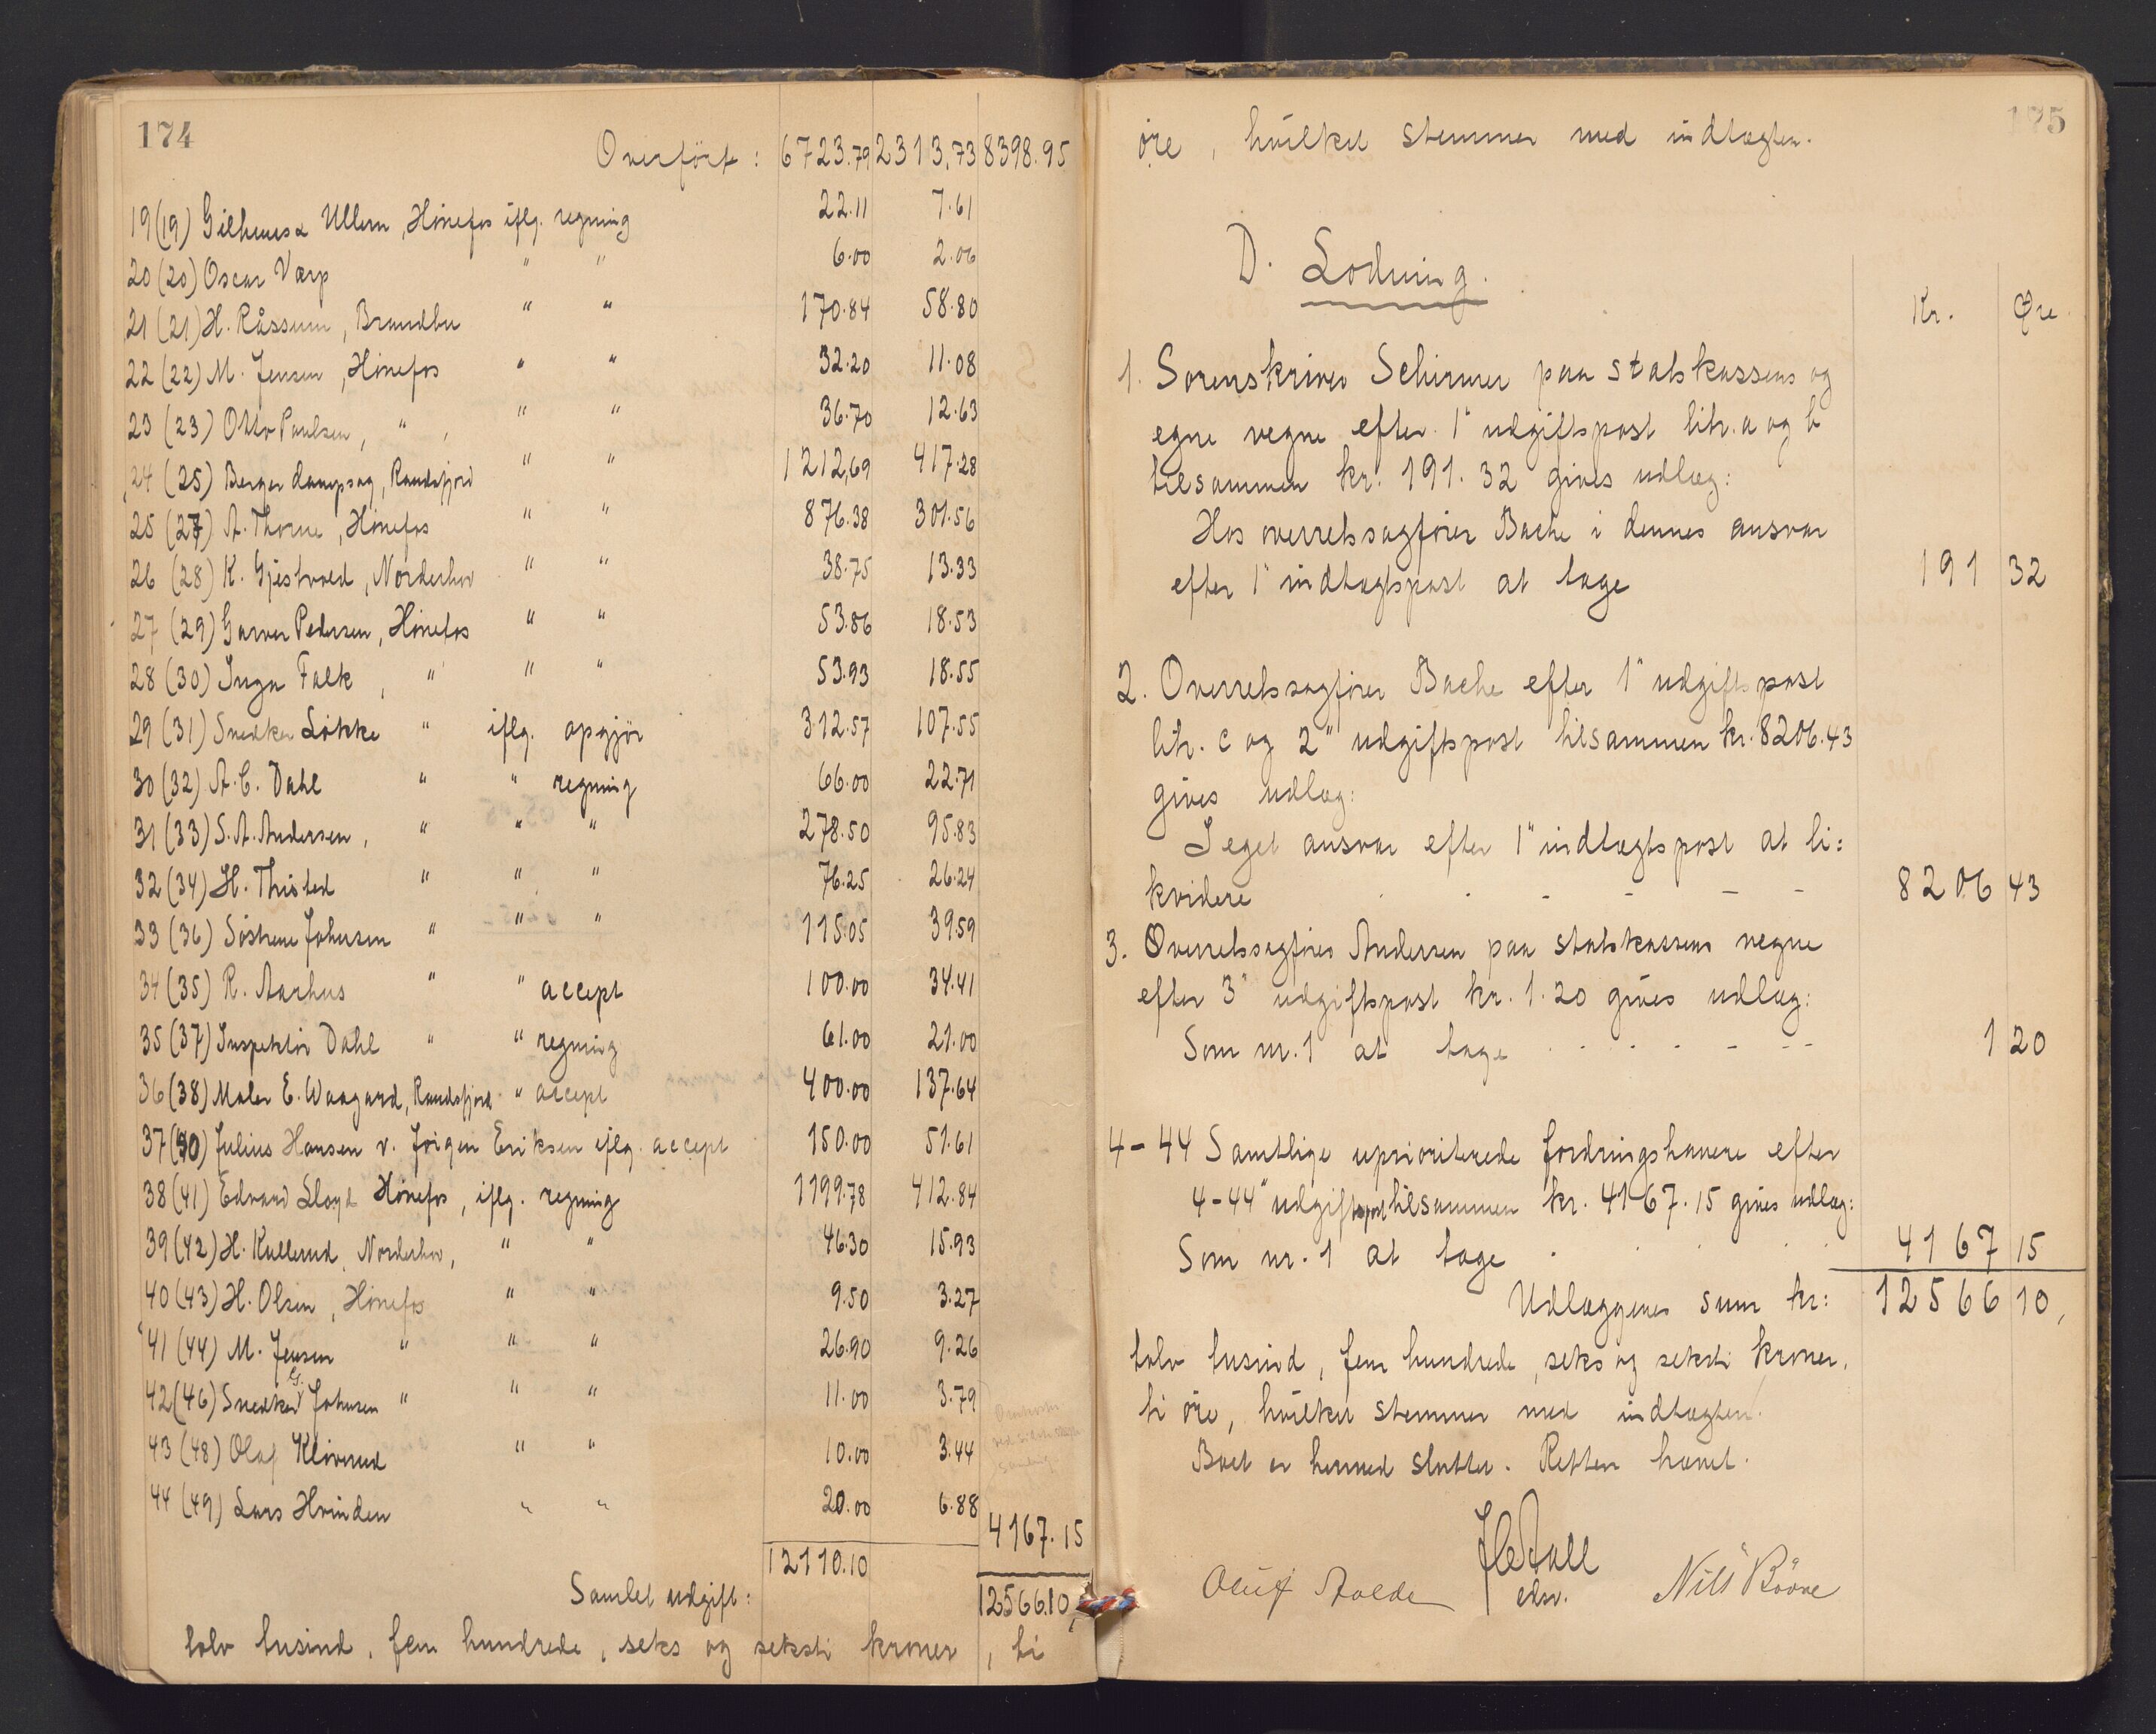 174
Overført : 6723.79 2313.73 8398.95
19 (19) Gilhuus & Ullern, Hønefos iflg. regning 22.11 7.61
20 (20) Oscar Værp " " 6.00 2.06
21 (21) H. Råssum, Brandbu " " 170.84 58.80
22 (22) M. Jensen, Hønefos " " 32.20 11.08
23 (23) Otto Paulsen, " , " " 36.70 12.63
24 (25) Berger dampsag, Randsfjord " " 1212,69 417.28
25 (27) A. Thorne, Hønefos " " 876.38 301.56
26 (28) K. Gjestvold, Norderhov " " 38.75 13.33
27 (29) Garver Pedersen, Hønefos " " 53.86 18.53
28 (30) Inga Falk, " " " 53.93 18.55
29 (31) Snedker Løkke " iflg. opgjør 312.57 107.55
30 (32) A. C. Dahl " " regning 66.00 22.71
31 (33) S. A. Andersen, " " " 278.50 95.83
32 (34) H. Thisted " " " 76.25 26.24
33 (36) Søstrene Johnsen " " " 115.05 39.59
34 (35) R. Aarhus " " accept 100.00 34.41
35 (37) Inspektør Dahl " " regning 61.00 21.00
36 (38) Maler E. Waagard, Randsfjord " accept 400.00 137.64
37 (40) Julius Hansen v. Jørgen Eriksen iflg. accept 150.00 51.61
38 (41) Edvard Lloyd Hønefos, iflg. regning 1199.78 412.84
39 (42) H. Kullerud, Norderhov, " " 46.30 15.93
40 (43) H. Olsen, Hønefos " " 9.50 3.27
41 (44) M. Jensen " " " 26.90 9.26
42 (46) Snedker G. Johnsen " " " 11.00 3.79
43 (48) Olaf Kløverud " " 10.00 3.44
44 (49) Lars Hvinden " " 20.00 6.88
4167.15
12110.10
Samlet udgift: 12566.10,
tolv tusind, fem hundrede, seks og seksti kroner, ti
175
øre, hvilket stemmer med indtægten.
D. Lodning.
Kr. Øre.
1. Sorenskriver Schirmer paa statskassens og
egne vegne efter 1" udgiftspost litr. a og b
tilsammen kr. 191.32 gives udlæg:
Hos overretssagfører Bache i dennes ansvar
efter 1" indtægtspost at tage 191 32
2. Overretssagfører Bache efter 1" udgiftspost
litr. c og 2" udgiftspost tilsammen kr. 8206.43
gives udlæg:
I eget ansvar efter 1" indtægtspost at li=
kvidere . - - - - - 8206 43
3. Overretssagfører Andersen paa statskassens vegne
efter 3" udgiftspost kr. 1.20 gives udlæg:
Som nr. 1 at tage - - - - - - - 1 20
4-44 Samtlige uprioriterede fordringshavere efter
4-44" udgiftspost tilsammen kr. 4167.15 gives udlæg:
Som nr. 1 at tage . . . . . 4167 15
Udlæggenes sum kr: 12566 10,
tolv tusind, fem hundrede, seks og seksti kroner,
ti øre, hvilket stemmer med indtægten.
Boet er hermed sluttet. Retten hævet.
edsv.